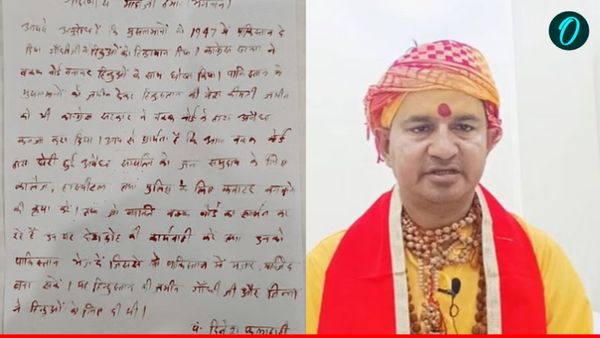 आपसे अनुरोध है कि मुसलमानों को 1947 में पाकिस्तान दे
दिया गाँधीजी ने हिन्दुओं को हिन्दुस्तान दिया। कांग्रेस सरकार ने
वक्फ बोर्ड बनाकर हिन्दुओं के साथ धोखा किया। पाकिस्तान में
मुसलमानों को जमीन देकर हिन्दुस्तान की बेस कीमती जमीन
को भी कांग्रेस सरकार ने वक्फ बोर्ड के द्वारा अवैध
कब्जा करा दिया। आप से प्रार्थना है कि आप वक्फ बोर्ड
द्वारा घेरी हुई अवैध सम्पत्ति को जन समुदाय के लिए
कालेज, हास्पीटल तथा पुलिस के लिए क्वाटर बनवाने
की कृपा करें। तथा जो व्यक्ति वक्फ बोर्ड का समर्थन कर
रहे हैं उन पर देशद्रोह की कार्यवाही करें तथा उनको
पाकिस्तान भेजें जिससे वे पाकिस्तान में मजार, मस्जिद
बना सकें। यह हिन्दुस्तान की जमीन गाँधी जी और जिन्ना
ने हिन्दुओं के लिए दी थी।
पं. दिनेश फलाहारी